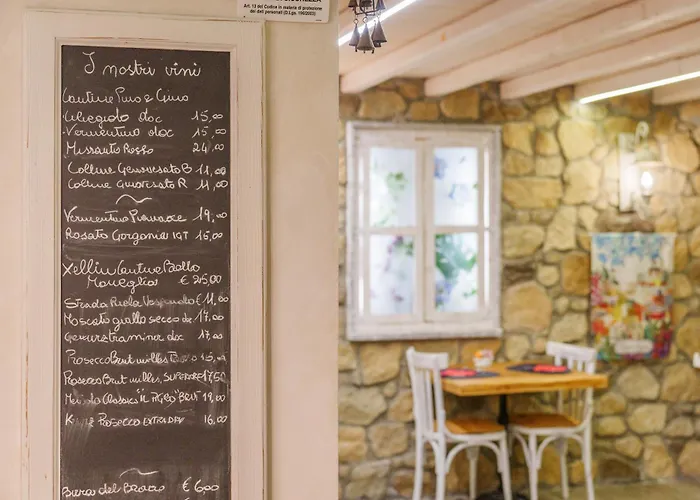 Art. 13 del Codice in materia di protezione
dei dati personali (D.Lgs. 196/2003)
I nostri vini
Cantine Pino e Gino
Ciliegiolo doc 15,00
Vermentino doc 15,00
Missanto Rosso 24,00
Colline Genovesato B 11,00
Colline Genovesato R 11,00
Vermentino 19,00
Rosato Gorgonia IGT 15,00
Cantine
Moneglia € 25,00
Strada € 11,00
Moscato giallo secco doc 17,00
Gewurztraminer doc 17,00
Prosecco Brut milles 15,00
Prosecco Brut milles. SUPERIORE 17,50
Classico "IL PIGRO" BRUT 19,00
Prosecco EXTRA DRY 16,00
del € 6,00